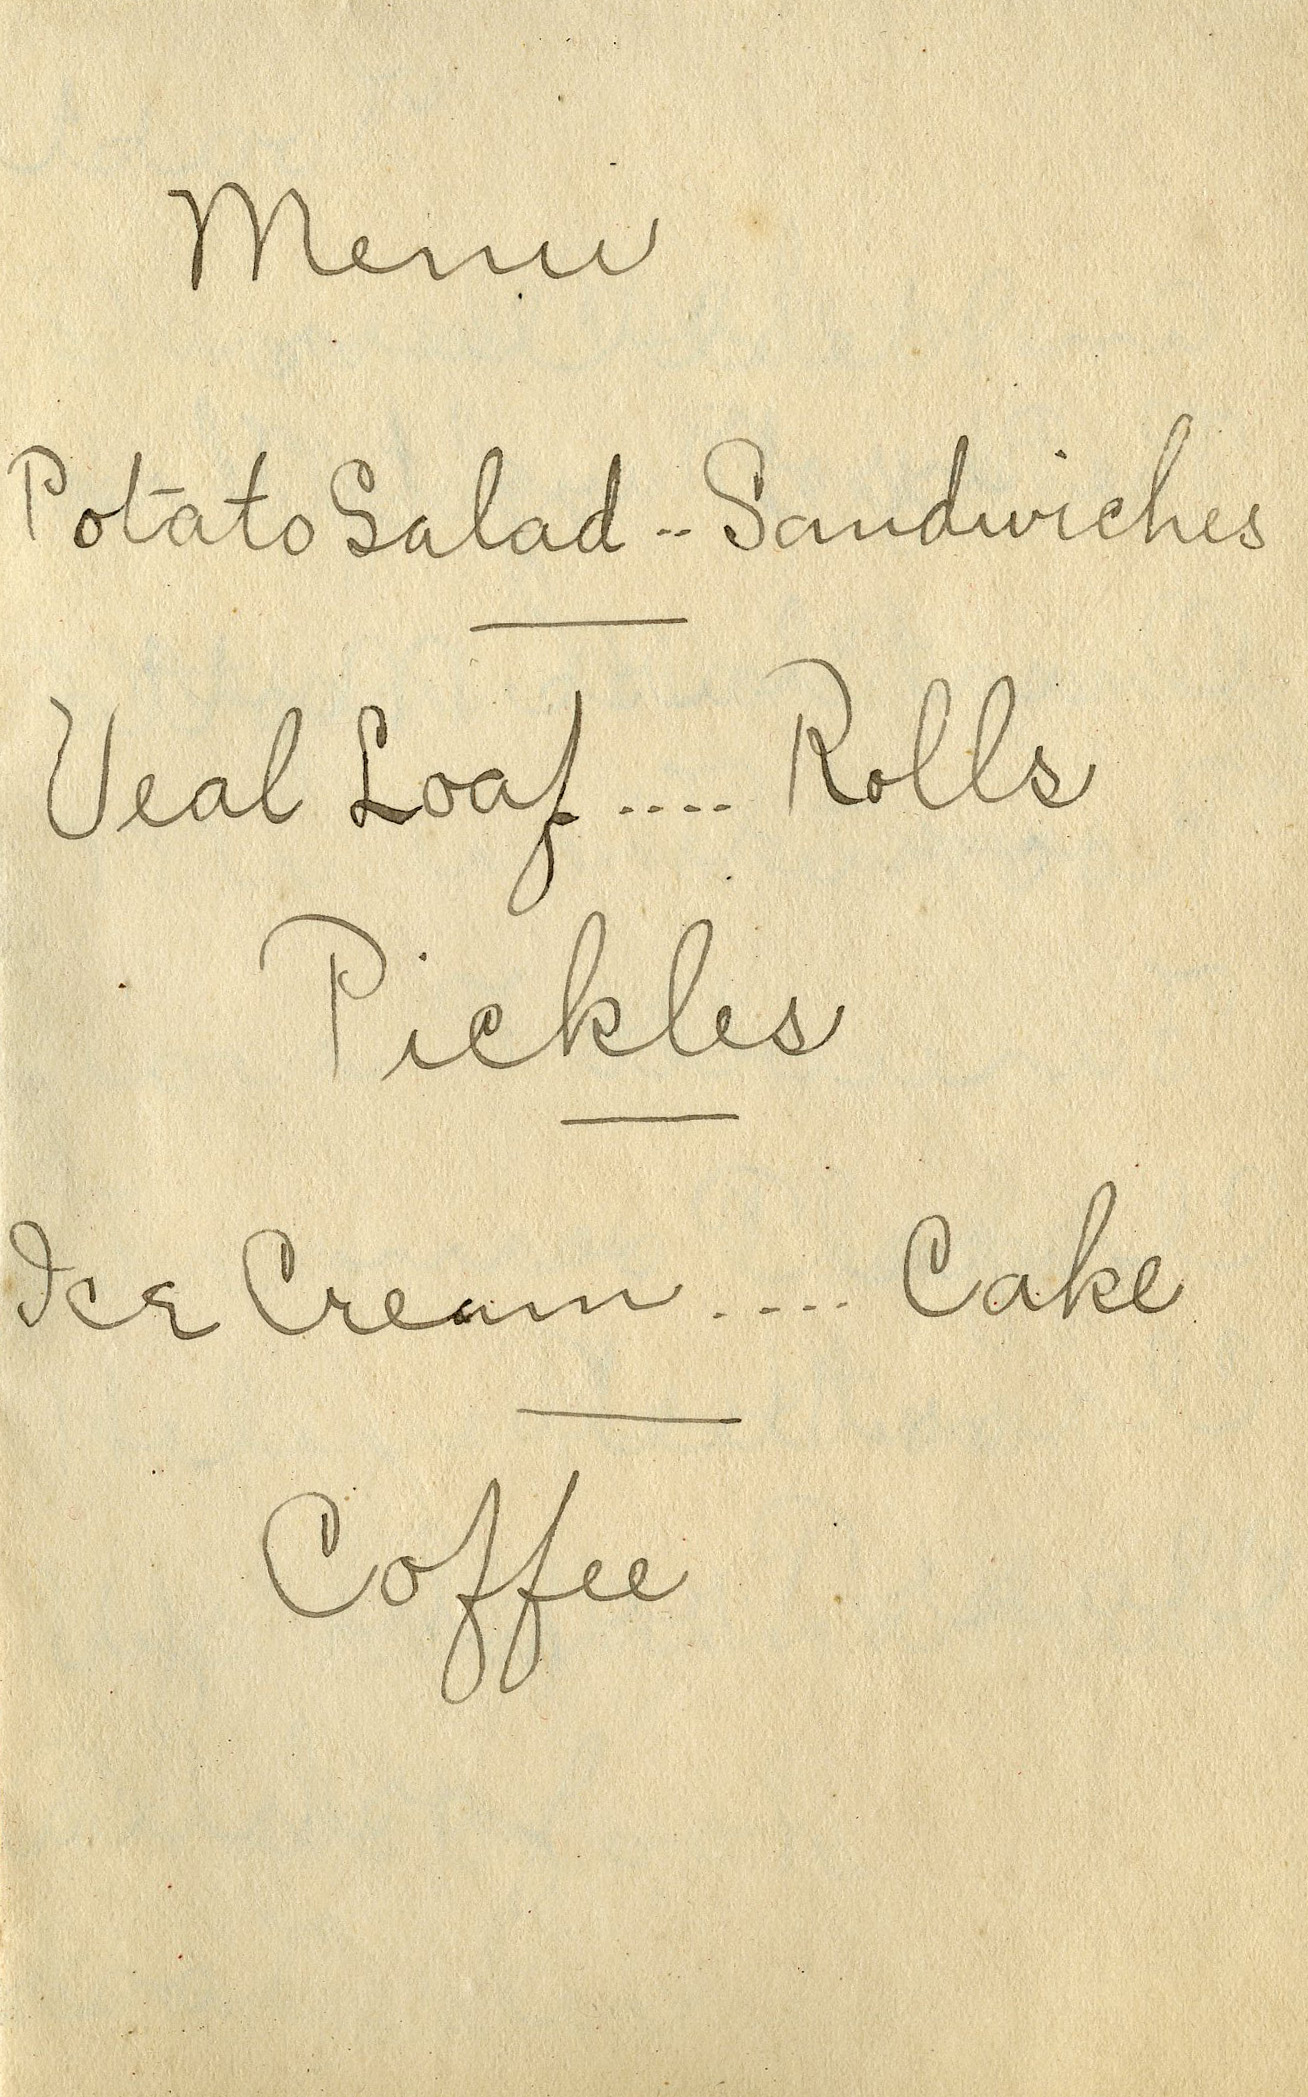 Menu
Potato Salad -- Sandwiches
Veal Loaf .... Rolls
Pickles
Ice Cream .... Cake
Coffee